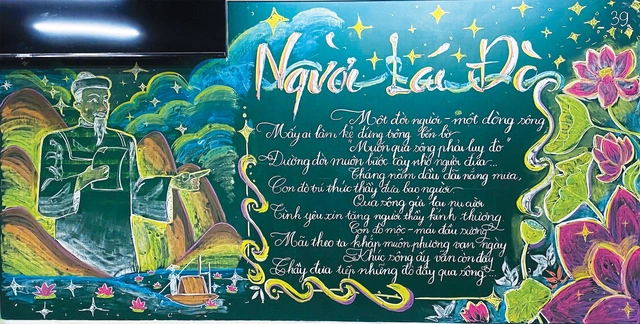 39
Người Lái Đò
Một đời người - một dòng sông
Mấy ai làm kẻ đứng trông bến bờ
"Muốn qua sông phải lụy đò"
Đường đời muôn bước cậy nhờ người đưa...
Tháng năm dầu dãi nắng mưa,
Con đò trí thức thầy đưa bao người.
Qua sông gửi lại nụ cười
Tình yêu xin tặng người thầy kính thương.
Con đò mộc - mái đầu sương
Mãi theo ta khắp muôn phương vạn ngày
Khúc sông ấy vẫn còn đây
Thầy đưa tiếp những đò đầy qua sông...